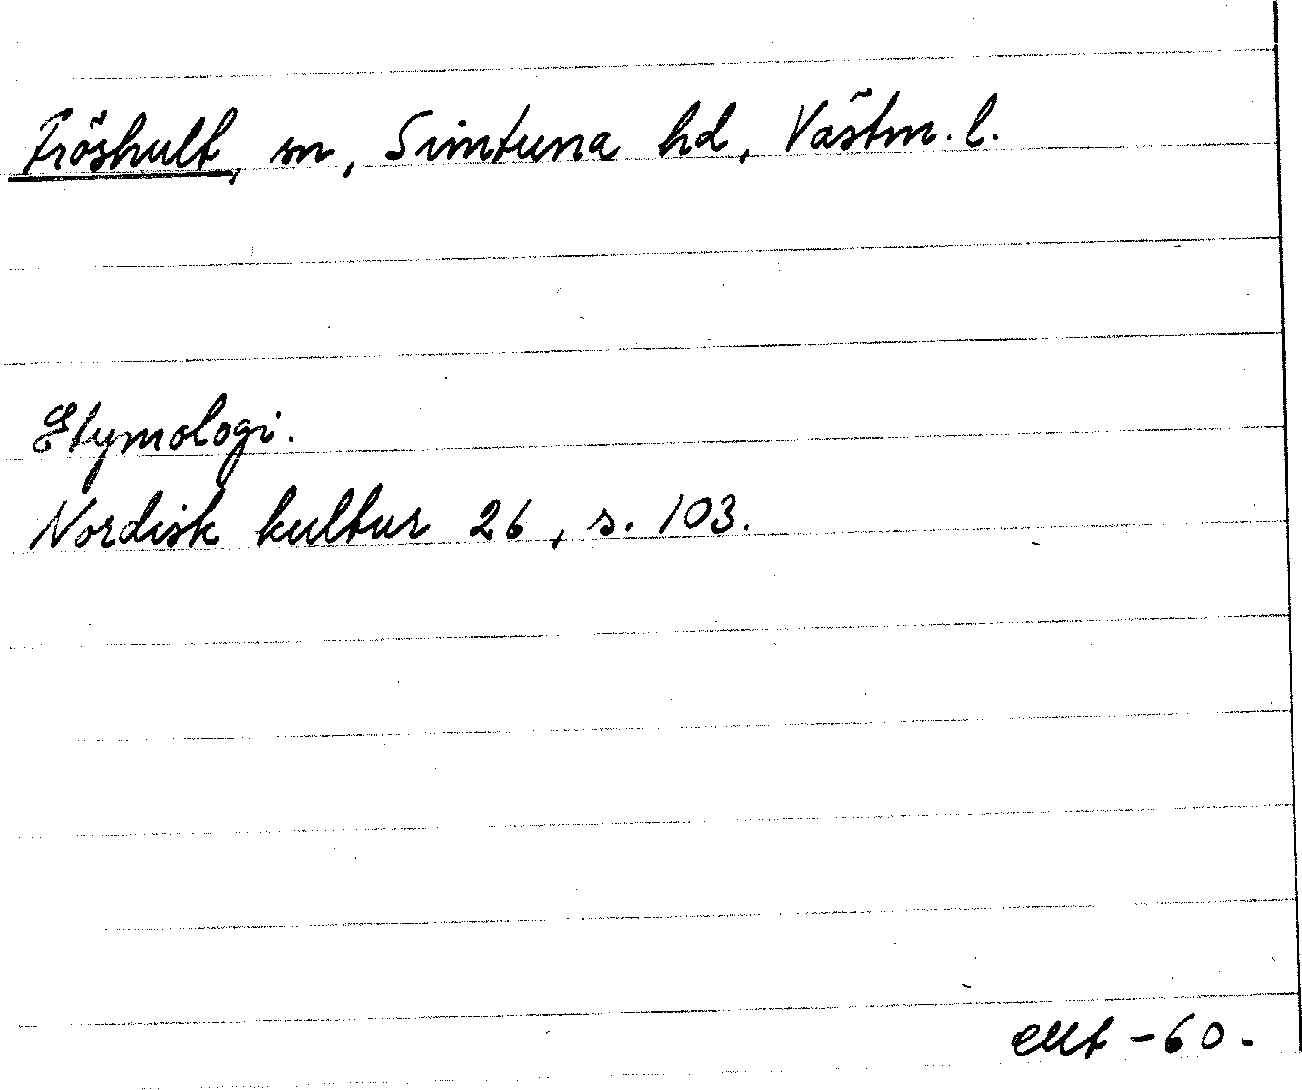 Fröshult, sn, Simtuna hd, Västm. l.
Etymologi.
Nordisk kultur 26, s. 103.
-60.